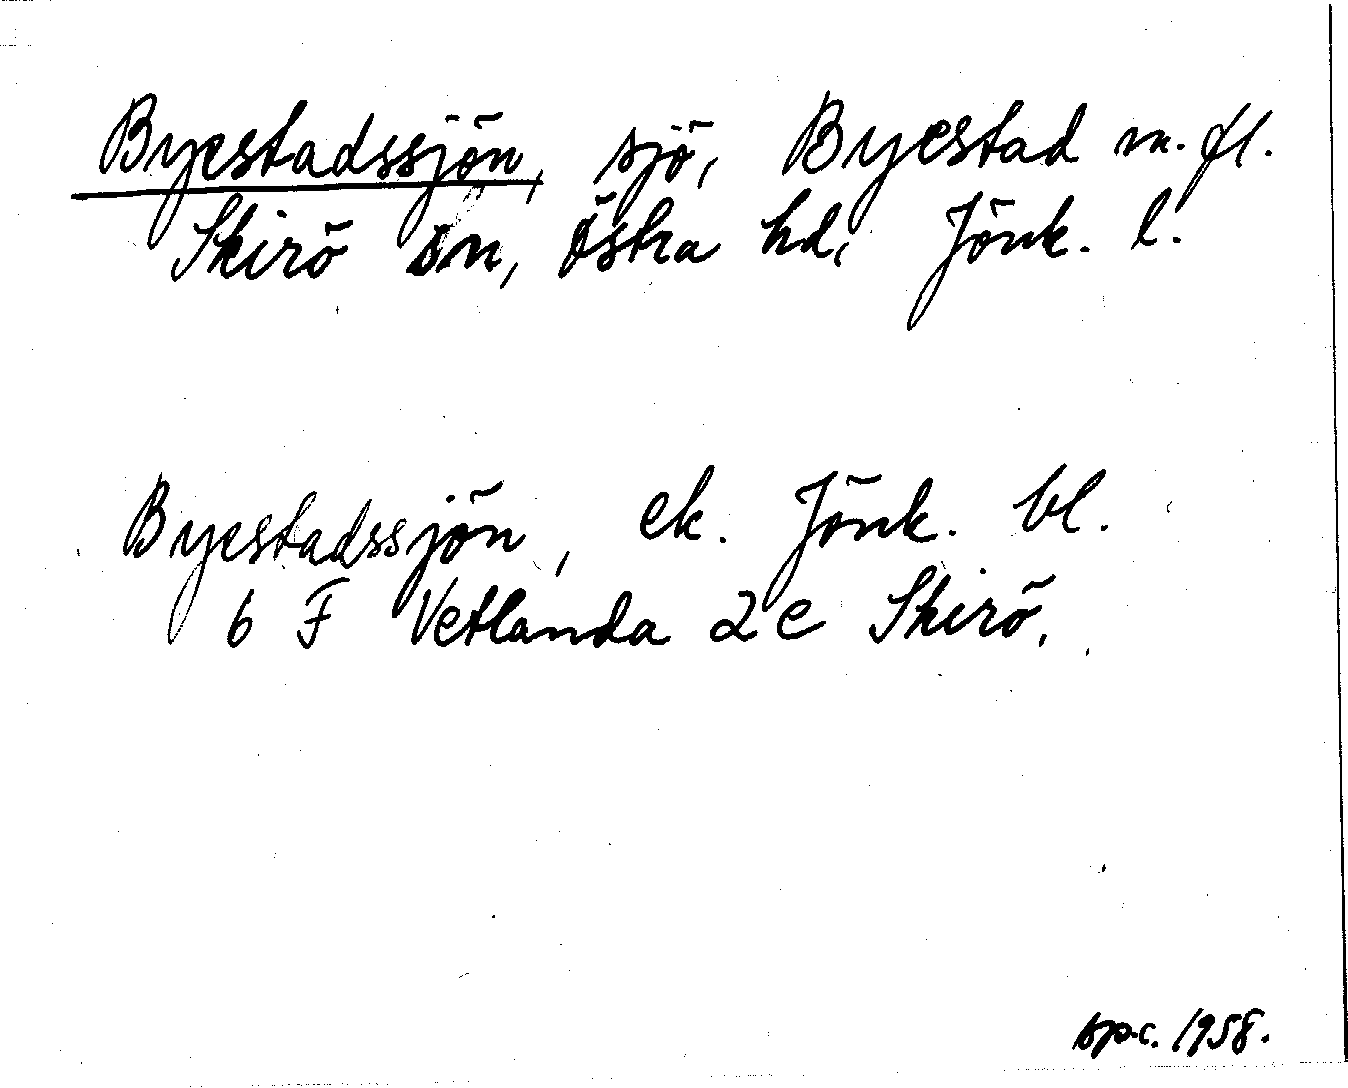 Byestadssjön, sjö, Byestad m. fl.
Skirö sn, Östra hd, Jönk. l.
Byestadssjön, ek. Jönk. bl.
6 F Vetlanda 2 e Skirö.
sp.c. 1958.